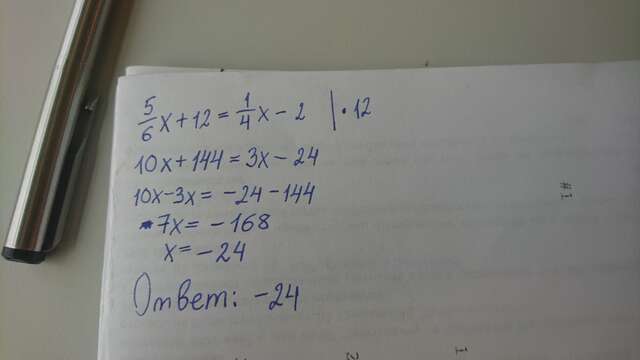 5/6 x + 12 = 1/4 x - 2 | · 12
10x + 144 = 3x - 24
10x - 3x = -24 - 144
7x = -168
x = -24
Ответ: -24
# 1
2
1